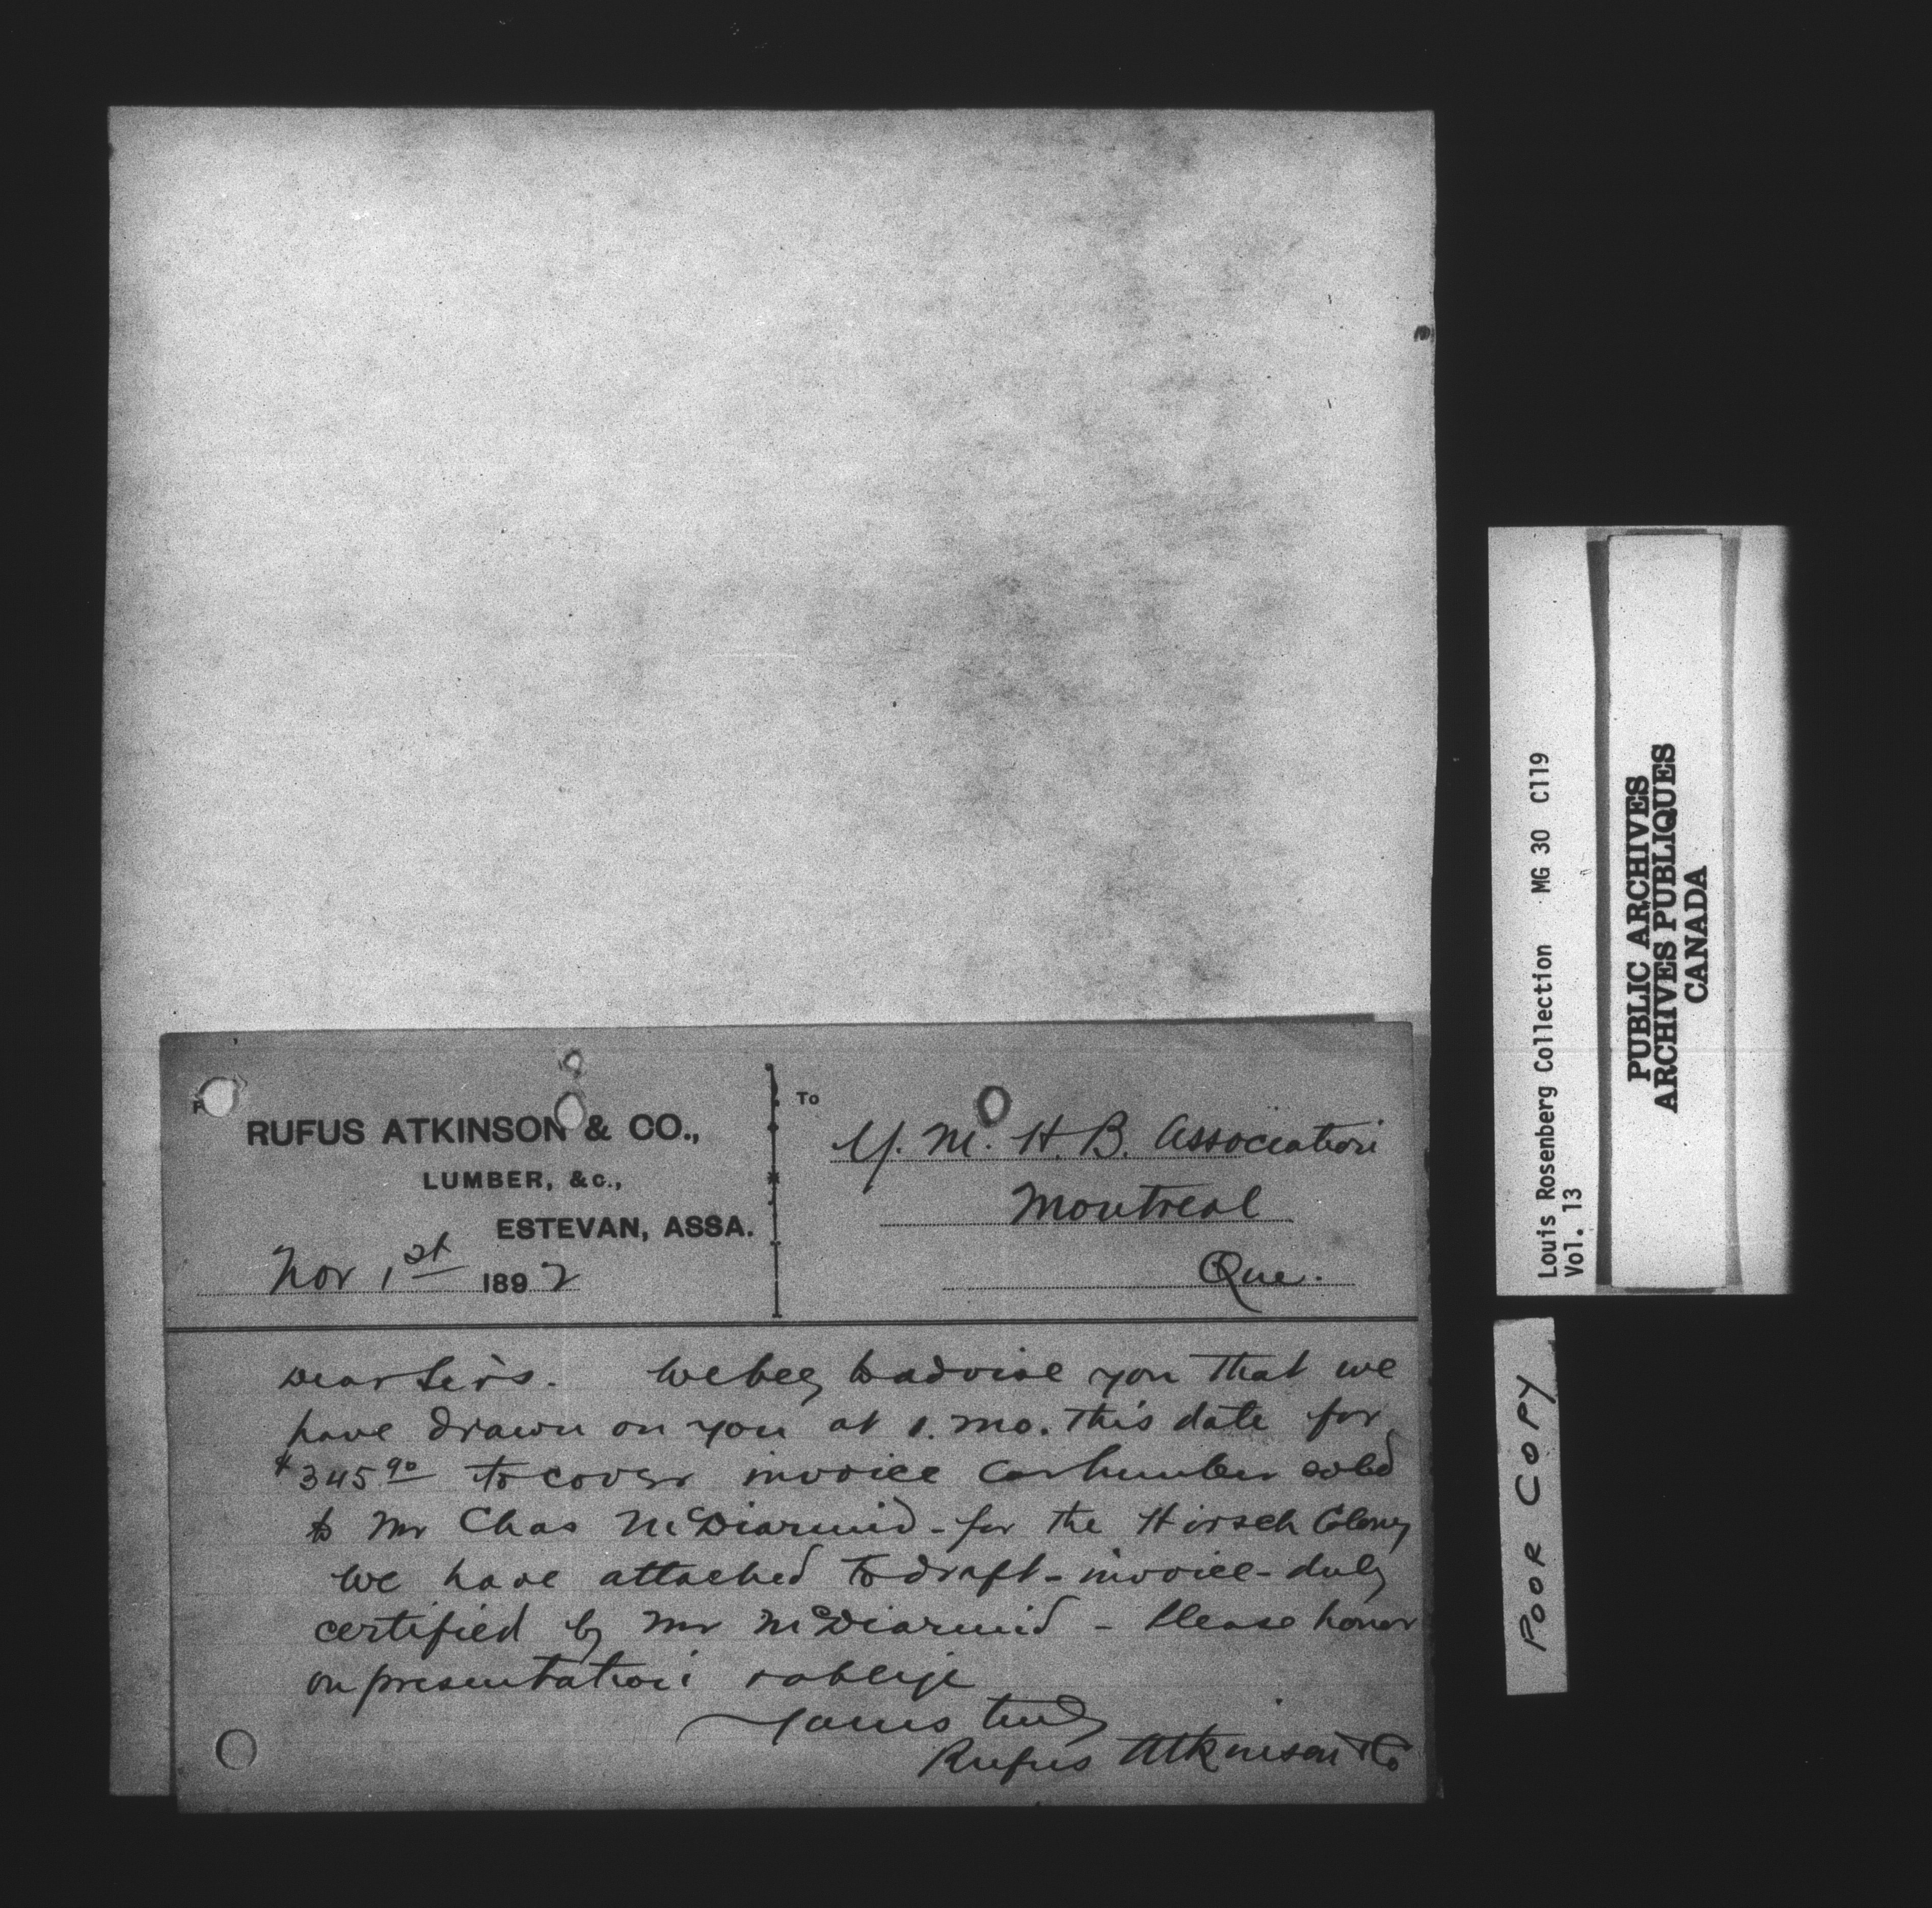 RUFUS ATKINSON & CO.,
LUMBER, &c.,
ESTEVAN, ASSA.
Nov 1st 1892
To
Y. M. H. B. Association
Montreal
Que.
Dear Sirs. We beg to advise you that we
have drawn on you at 1. mo. this date for
$345.90 to cover invoice Car lumber sold
to Mr Chas McDiarmid - for the Hirsch Colony
We have attached to draft - invoice - duly
certified by Mr McDiarmid - Please honor
on presentation & oblige
Yours truly
Rufus Atkinson & Co
Louis Rosenberg Collection MG 30 C119
Vol. 13
PUBLIC ARCHIVES
ARCHIVES PUBLIQUES
CANADA
POOR COPY